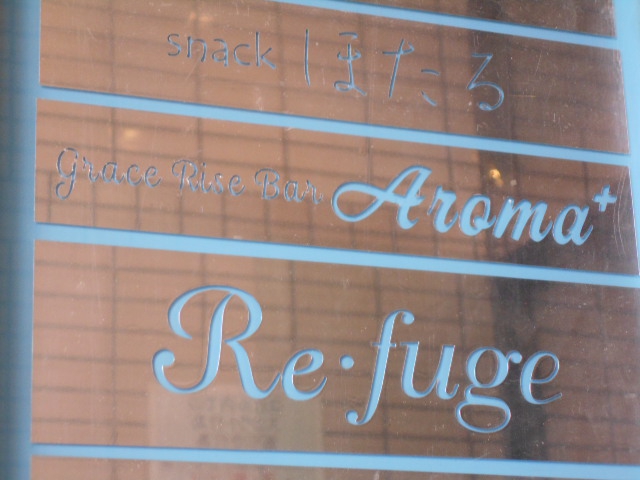 snack ほたる
Grace Rise Bar Aroma+
Re·fuge